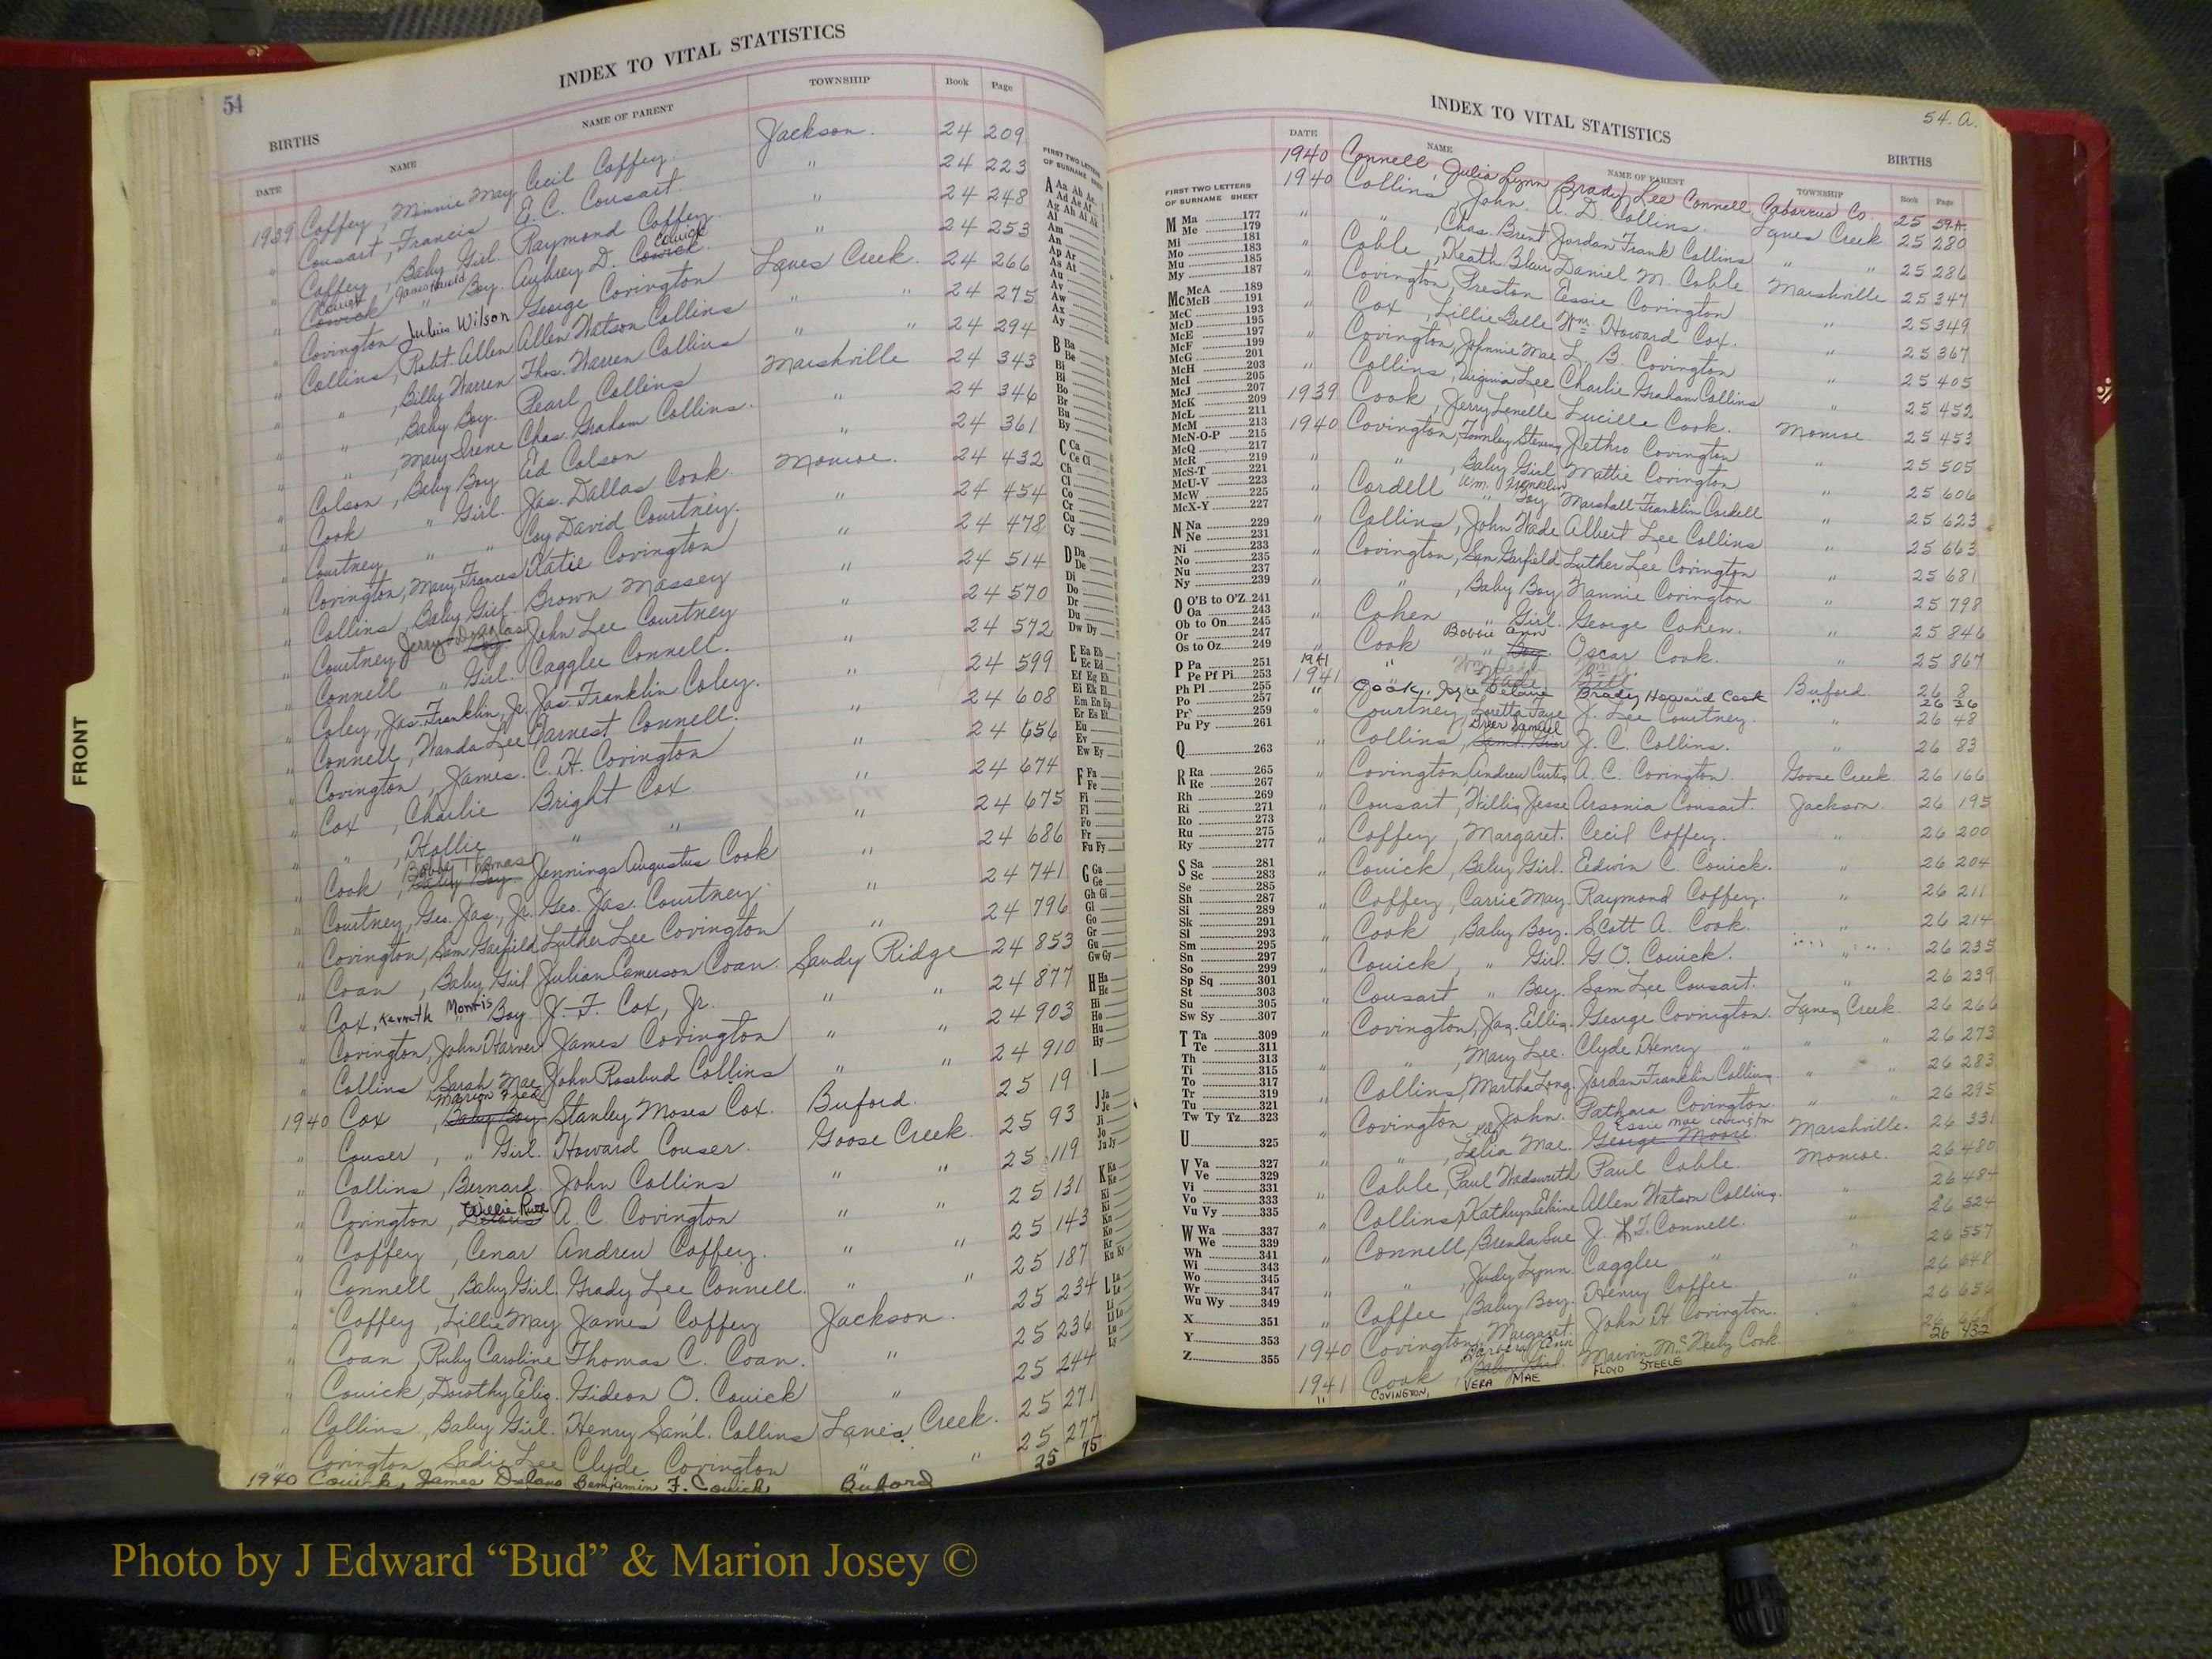 54
INDEX TO VITAL STATISTICS
BIRTHS
DATE NAME NAME OF PARENT TOWNSHIP Book Page
1939 Coffey, Minnie May Cecil Coffey. Jackson. 24 209
" Cousart, Francis E.C. Cousart. " 24 223
" Coffey, Baby Girl. Raymond Coffey. " 24 248
" Couick James Harold Boy. Aubrey D. Couick " 24 253
" Covington Julius Wilson George Covington Lanes Creek. 24 266
" Collins, Robt. Allen Allen Watson Collins " " 24 275
" " , Billy Warren Thos. Warren Collins " " 24 294
" " , Baby Boy. Pearl Collins Marshville 24 343
" " , Mary Irene Chas. Graham Collins. " 24 346
" Colson, Baby Boy Ed Colson " 24 361
" Cook " Girl. Jas. Dallas Cook. Monroe. 24 432
" Courtney " " Coy David Courtney. " 24 454
" Covington, Mary Frances Katie Covington " 24 478
" Collins, Baby Girl. Brown Massey " 24 514
" Courtney Jerry Douglas John Lee Courtney " 24 570
" Connell " Girl. Cagglee Connell. " 24 572
" Coley, Jas. Franklin, Jr. Jas. Franklin Coley. " 24 599
" Connell, Wanda Lee Earnest Connell. " 24 608
" Covington, James. C. H. Covington " 24 656
" Cox, Charlie Bright Cox " 24 674
" " , Hollie " " " 24 675
" Cook, Bobby Thomas Jennings Augustus Cook " 24 686
" Courtney, Geo. Jas., Jr. Geo. Jas. Courtney " 24 741
" Covington, Sam Garfield Luther Lee Covington " 24 796
" Coan, Baby Girl Julian Comerson Coan. Sandy Ridge 24 853
" Cox, Kenneth Morris Boy J. F. Cox, Jr. " " 24 877
" Covington, John Harver James Covington " " 24 903
" Collins Sarah Mae John Rosebud Collins " " 24 910
1940 Cox Marion Fred, Baby Boy Stanley Moses Cox. Buford. 25 19
" Couser, " Girl. Howard Couser. Goose Creek. 25 93
" Collins, Bernard. John Collins " " 25 119
" Covington, Willie Ruth A. C. Covington " " 25 131
" Coffey, Cenar Andrew Coffey. " " 25 143
" Connell, Baby Girl. Grady Lee Connell. " " 25 187
" Coffey, Lillie May James Coffey Jackson. 25 234
" Coan, Ruby Caroline Thomas C. Coan. " 25 236
" Couick, Dorothy Eliz. Gideon O. Couick " 25 244
" Collins, Baby Girl. Henry Sam'l. Collins Lanes Creek. 25 271
" Covington, Sadie Lee Clyde Covington " " 25 277
1940 Couick, James Delano Benjamin F. Couick Buford 25 75
FRONT
FIRST TWO LETTERS OF SURNAME SHEET
A Aa Ab Ac
Ad Ae Af
Ag Ah Ai Ak
Al
Am
An
Ap Ar
As At
Au
Av
Aw
Ax
Ay
B Ba
Be
Bi
Bl
Bo
Br
Bu
By
C Ca
Ce Ci
Ch
Cl
Co
Cr
Cu
Cy
D Da
De
Di
Do
Dr
Du
Dw Dy
E Ea Eb
Ec Ed
Ef Eg Eh
Ei Ek El
Em En Ep
Er Es Et
Eu
Ev
Ew Ey
F Fa
Fe
Fi
Fl
Fo
Fr
Fu Fy
G Ga
Ge
Gh Gi
Gl
Go
Gr
Gu
Gw Gy
H Ha
He
Hi
Ho
Hu
Hy
I
J Ja
Je
Ji
Jo
Ju Jy
K Ka
Ke
Ki
Kl
Kn
Ko
Kr
Ku Ky
L La
Le
Li
Ll Lo
Lu
Ly
54. A.
INDEX TO VITAL STATISTICS
BIRTHS
DATE NAME NAME OF PARENT TOWNSHIP Book Page
FIRST TWO LETTERS OF SURNAME SHEET
M Ma 177
Me 179
Mi 181
Mo 183
Mu 185
My 187
Mc McA 189
McB 191
McC 193
McD 195
McE 197
McF 199
McG 201
McH 203
McI 205
McJ 207
McK 209
McL 211
McM 213
McN-O-P 215
McQ 217
McR 219
McS-T 221
McU-V 223
McW 225
McX-Y 227
N Na 229
Ne 231
Ni 233
No 235
Nu 237
Ny 239
O O'B to O'Z 241
Oa 243
Ob to On 245
Or 247
Os to Oz 249
P Pa 251
Pe Pf Pi 253
Ph Pl 255
Po 257
Pr 259
Pu Py 261
Q 263
R Ra 265
Re 267
Rh 269
Ri 271
Ro 273
Ru 275
Ry 277
S Sa 281
Sc 283
Se 285
Sh 287
Si 289
Sk 291
Sl 293
Sm 295
Sn 297
So 299
Sp Sq 301
St 303
Su 305
Sw Sy 307
T Ta 309
Te 311
Th 313
Ti 315
To 317
Tr 319
Tu 321
Tw Ty Tz 323
U 325
V Va 327
Ve 329
Vi 331
Vo 333
Vu Vy 335
W Wa 337
We 339
Wh 341
Wi 343
Wo 345
Wr 347
Wu Wy 349
X 351
Y 353
Z 355
1940 Connell, Julia Lynn Brady Lee Connell Cabarrus Co. 25 59-A
1940 Collins, John. A. D. Collins. Lanes Creek 25 280
" " , Chas. Brent Jordan Frank Collins " " 25 286
" Coble, Keath Blair Daniel M. Coble Marshville 25 347
" Covington, Preston Essie Covington " 25 349
" Cox, Lillie Belle Wm. Howard Cox. " 25 367
" Covington, Johnnie Mae L. B. Covington " 25 405
" Collins, Virginia Lee Charlie Graham Collins " 25 452
1939 Cook, Jerry Lenelle Lucille Cook. Monroe 25 453
1940 Covington, Townley Stevens Jethro Covington " 25 505
" " , Baby Girl Mattie Covington " 25 606
" Cordell Wm. Franklin " Boy Marshall Franklin Cordell " 25 623
" Collins, John Wade Albert Lee Collins " 25 663
" Covington, Sam Garfield Luther Lee Covington " 25 681
" " , Baby Boy Nannie Covington " 25 798
" Cohen " Girl. George Cohen. " 25 846
" Cook Bobbie Ann " Boy Oscar Cook. " 25 867
1941 " Wade Buford 26 8
" Cook, Joyce Delaine Brady Howard Cook " 26 26
" Courtney, Loretta Faye J. Lee Courtney. " 26 48
" Collins, Greer Samuel J. C. Collins. " 26 83
" Covington, Andrew Curtis A. C. Covington. Goose Creek 26 166
" Cousart, Willis Jesse Arsonia Cousart. Jackson. 26 195
" Coffey, Margaret. Cecil Coffey. " 26 200
" Couick, Baby Girl. Edwin C. Couick. " 26 204
" Coffey, Carrie May. Raymond Coffey. " 26 211
" Cook, Baby Boy. Scott A. Cook. " 26 214
" Couick, " Girl. G. O. Couick. " 26 235
" Cousart " Boy. Sam Lee Cousart. " 26 239
" Covington, Jas. Ellis. George Covington. Lanes Creek 26 266
" " , Mary Lee. Clyde Henry " " " 26 273
" Collins, Martha Long. Jordan Franklin Collins. " " 26 283
" Covington, John. Covington. " " 26 295
" " , Lelia Mae. Essie Mae Covington George Moore Marshville. 26 331
" Coble, Paul Wadsworth Paul Coble. Monroe. 26 480
" Collins, Kathryn Elaine Allen Watson Collins. " 26 484
" Connell, Brenda Sue J. L. S. Connell. " 26 524
" " , Judy Lynn. Cagglee " " 26 557
" Coffee, Baby Boy. Henry Coffee. " 26 648
1940 Covington, Margaret. John H. Covington. " 26 656
1941 Cook, Barbara Ann Baby Girl. Marvin McNeely Cook. 26
" COVINGTON, VERA MAE FLOYD STEELE 26 432
Photo by J Edward “Bud” & Marion Josey ©